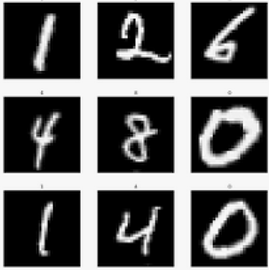 1 2 6
4 8 0
1 4 0